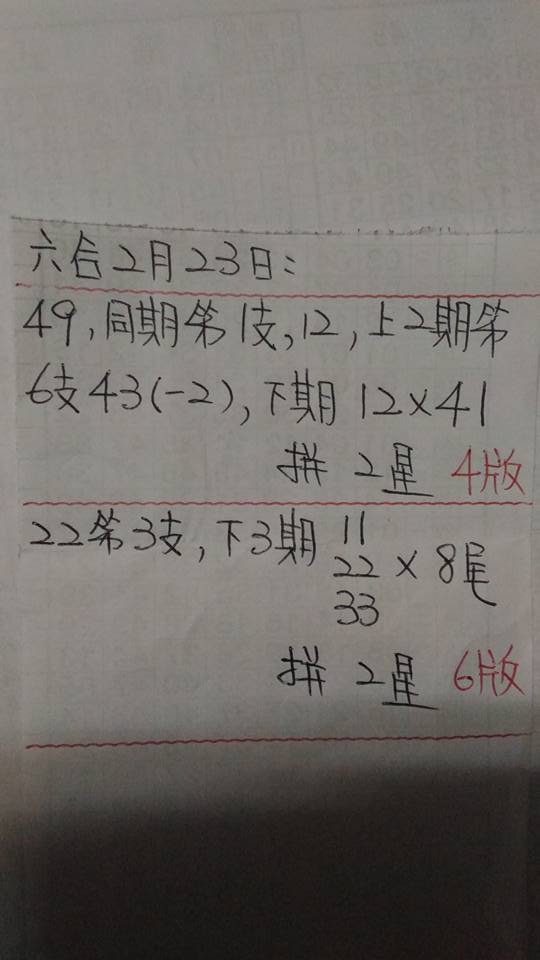 六合2月23日:
49,同期第1支,12,上2期第
6支43(-2),下期12×41
拼 2星 4版
22第3支,下3期 11
22 × 8尾
33
拼 2星 6版